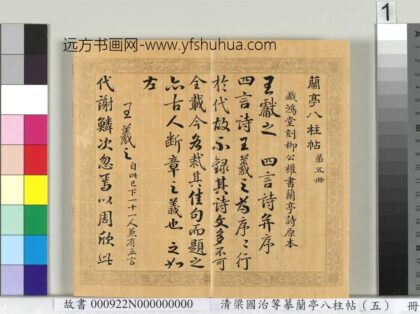 远方书画网-www.yfshuhua.com
蘭亭八柱帖 第五冊
戲鴻堂刻柳公權書蘭亭詩原本
王獻之 四言詩并序
四言詩王羲之為序序行
於代故不錄其詩文多不可
全載今各裁其佳句而題之
亦古人斷章之義也 之如
左
王羲之 自此已下一十一人兼有五言
代謝鱗次忽焉以周欣此
故書 000922N000000000 清梁國治等摹蘭亭八柱帖(五) 冊